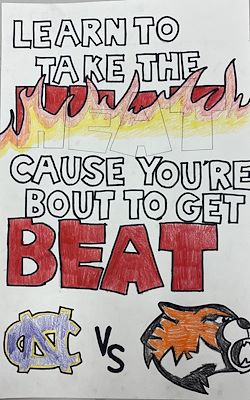 LEARN TO
TAKE THE
HEAT
CAUSE YOU'RE
BOUT TO GET
BEAT
NC VS